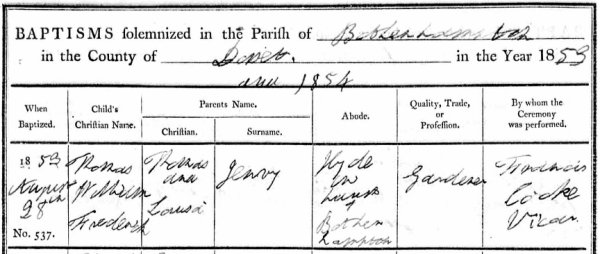 BAPTISMS solemnized in the Parish of Bothenhampton
in the County of Dorset. in the Year 1853
and 1854
When Baptized.
Child's Christian Name.
Parents Name.
Christian.
Surname.
Abode.
Quality, Trade, or Profession.
By whom the Ceremony was performed.
1853
August
28th
No. 537.
Thomas
William
Frederick
Thomas
and
Louisa
Jenvy
Hyde
in
Bothen
hampton
Gardener
Francis
Cooke
Vicar